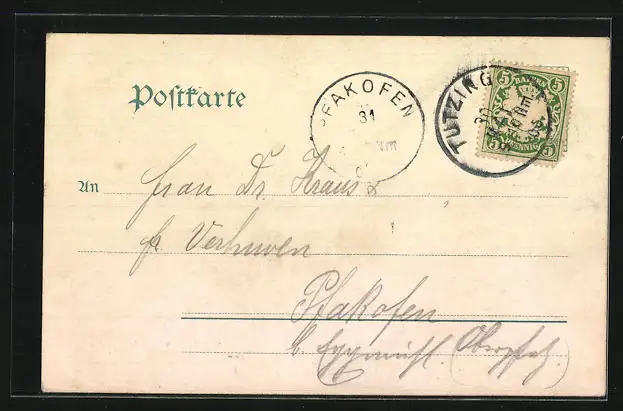 Postkarte
PFAKOFEN
31
TUTZING
30
5 BAYERN 5
5 PFENNIG 5
An Frau Dr. Kraus
Pfakofen
b. Eggmühl. (Oberpfalz)